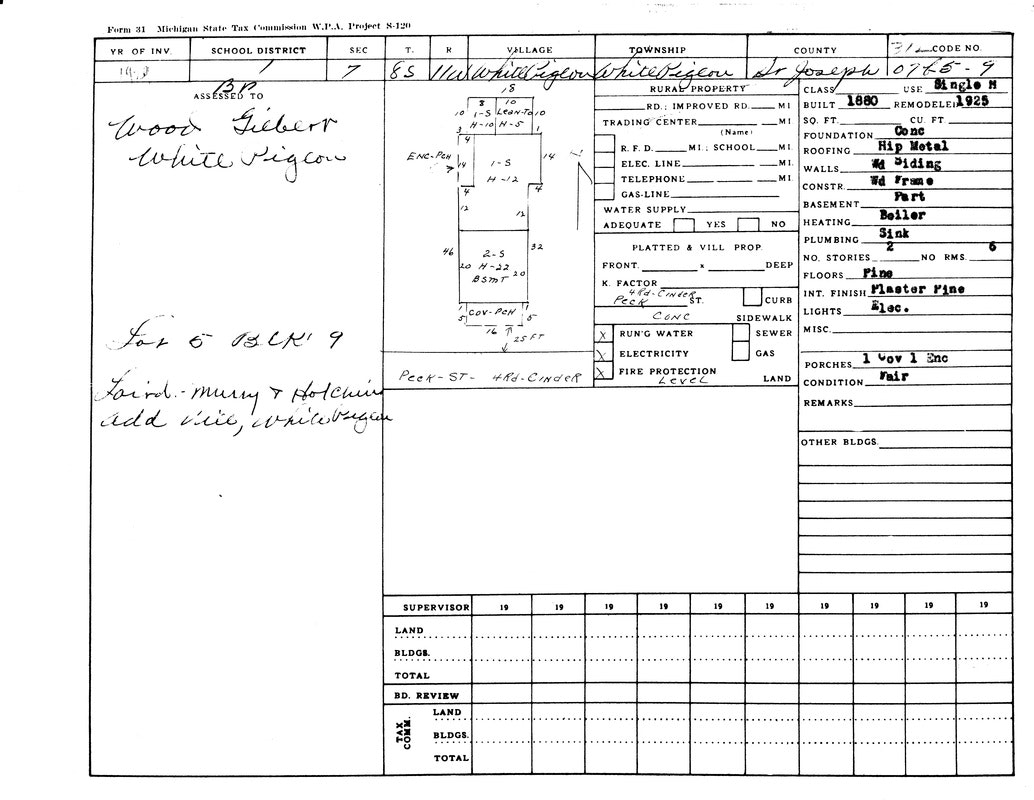 Form 31 Michigan State Tax Commission W.P.A. Project S-120
YR OF INV. SCHOOL DISTRICT SEC T. R VILLAGE TOWNSHIP COUNTY CODE NO.
1 7 8S 11W White Pigeon White Pigeon St Joseph
BP
ASSESSED TO
Wood Gilbert
White Pigeon
Lot 5 BLK 9
Laird - Murry & Hotchins
add vill, White Pigeon
18
8 10
10 1-S LEAN-TO 10
H-10 H-5
3 1
4
ENC-PCH
14 1-S 14
H-12
4 4
12 12
46 2-S 32
20 H-22 20
BSMT
1 COV-PCH 1
5 5
16 25 FT
PECK-ST- 4RD-CINDER
RURAL PROPERTY
RD.; IMPROVED RD. MI.
TRADING CENTER MI.
(Name)
R. F. D. MI.; SCHOOL MI.
ELEC. LINE MI.
TELEPHONE MI.
GAS-LINE
WATER SUPPLY
ADEQUATE YES NO
PLATTED & VILL PROP.
FRONT. x DEEP
K. FACTOR
4RD-CINDER
PECK ST. CURB
CONC SIDEWALK
X RUN'G WATER SEWER
X ELECTRICITY GAS
X FIRE PROTECTION
LEVEL LAND
CLASS USE Single M
BUILT 1880 REMODELED 1925
SQ. FT. CU. FT.
FOUNDATION Conc
ROOFING Hip Metal
WALLS Wd Siding
CONSTR. Wd Frame
BASEMENT Part
HEATING Boiler
PLUMBING Sink
NO. STORIES 2 NO RMS. 6
FLOORS Pine
INT. FINISH Plaster Pine
LIGHTS Elec.
MISC.
PORCHES 1 Cov 1 Enc
CONDITION Fair
REMARKS
OTHER BLDGS.
SUPERVISOR 19 19 19 19 19 19 19 19 19 19
LAND
BLDGS.
TOTAL
BD. REVIEW
TAX COMM.
LAND
BLDGS.
TOTAL